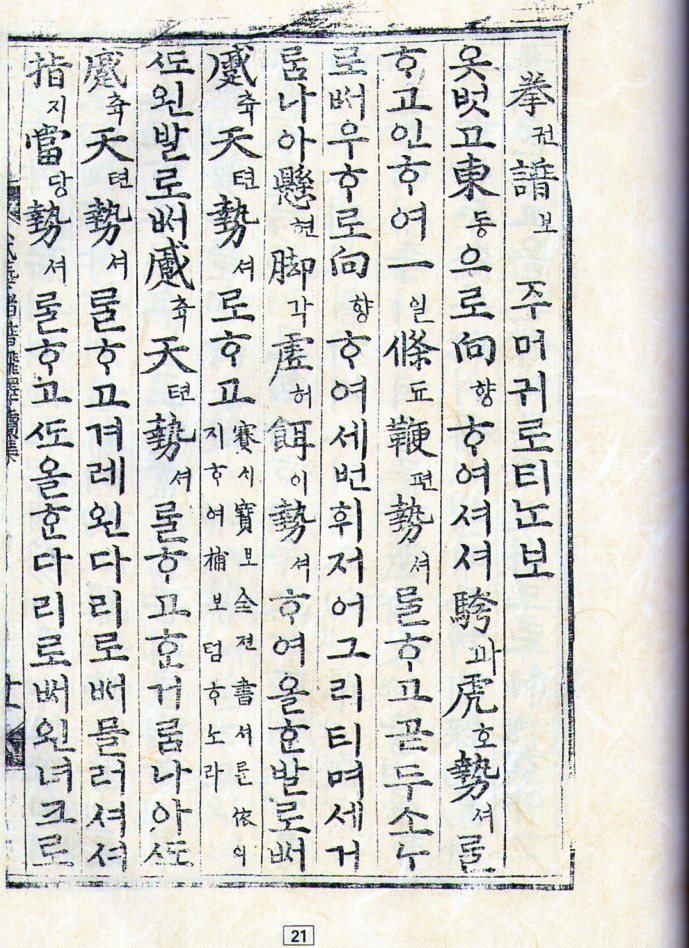 拳권譜보 주머귀로티ᄂᆞᆫ보
옷벗고東동으로向향ᄒᆞ여셔셔跨과虎호勢셔ᄅᆞᆯ
ᄒᆞ고인ᄒᆞ여一일條됴鞭편勢셔ᄅᆞᆯᄒᆞ고곧두소누
로ᄡᅥ우ᄒᆞ로向향ᄒᆞ여세번휘저어그리티며세거
룸나아懸현脚각虛허餌이勢셔ᄒᆞ여올ᄒᆞᆫ발로ᄡᅥ
蹙축天텬勢셔로ᄒᆞ고
賽ᄉᆡ寶보全젼書셔ᄅᆞᆯ依의
지ᄒᆞ여補보텸ᄒᆞ노라
ᄯᅩ왼발로ᄡᅥ蹙축天텬勢셔ᄅᆞᆯᄒᆞ고ᄒᆞᆫ거룸나아ᄯᅩ
蹙축天텬勢셔ᄅᆞᆯᄒᆞ고겨레왼다리로ᄡᅥ믈러셔셔
指지當당勢셔ᄅᆞᆯᄒᆞ고ᄯᅩ올ᄒᆞᆫ다리로ᄡᅥ왼녀크로
21